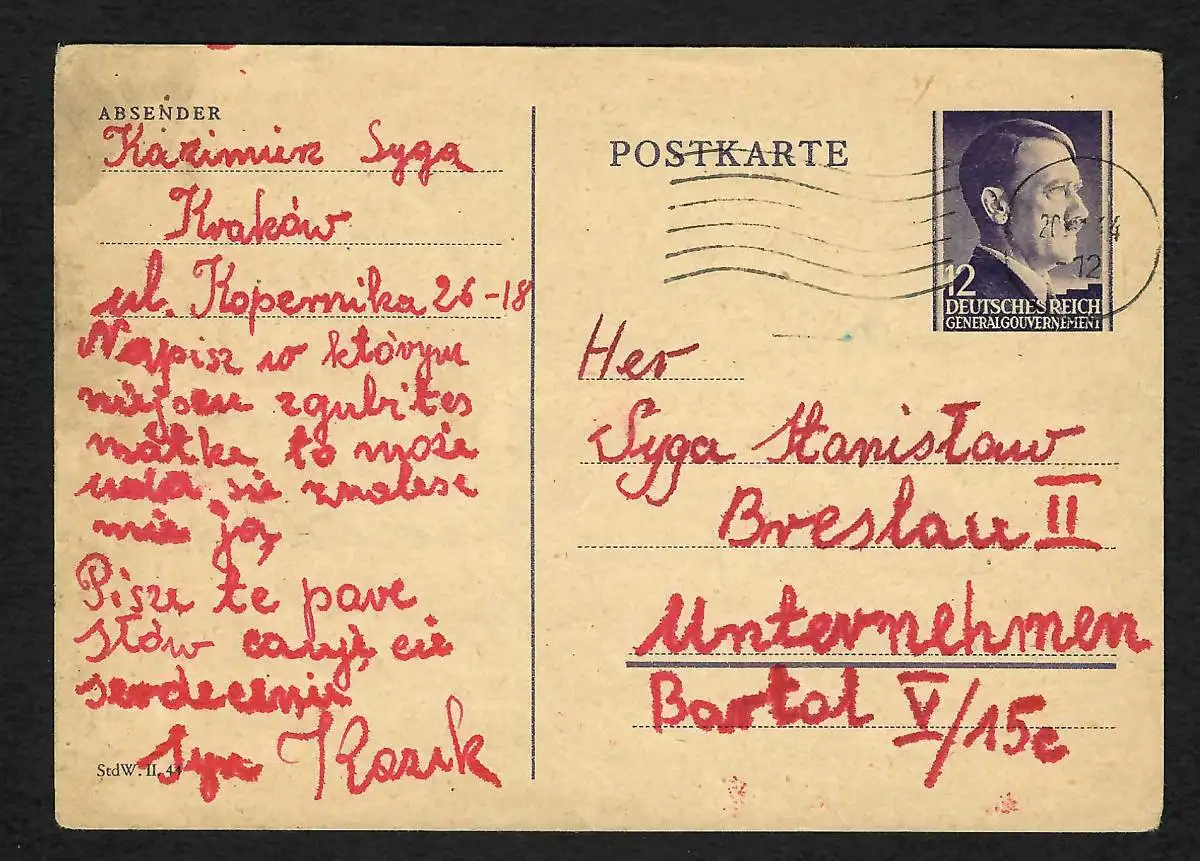 ABSENDER
Kazimierz Syga
Kraków
ul. Kopernika 26-18
Napisz w którym
miejscu zgubiłes
matke to może
uda sie znalesc
mie ją,
Pisze te pare
słów całuję cie
serdecznie
Syn Kazik
StdW. II. 44
POSTKARTE
12
DEUTSCHES REICH
GENERALGOUVERNEMENT
-12
Her
Syga Stanisław
Breslau II
Unternehmen
Bartol V/15c